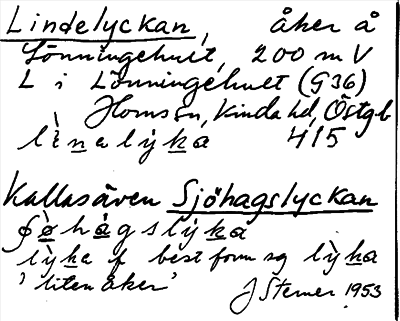 Lindelyckan, åker å
Lönningehult, 200 m V
L i Lönningehult (G36)
Horns sn, Kinda hd, Östgb
lìnalỳka 415
Kallas även Sjöhagslyckan
lỳka f best form sg lỳka
'liten åker' J Sterner 1953